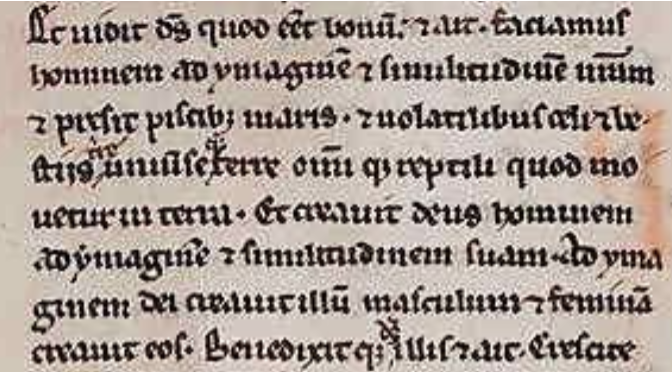 Et uidit ds̄ quod eēt bonū. ⁊ ait. faciamus
hominem ad ymaginē ⁊ similitudinē nr̄am
⁊ presit piscibꝫ maris. ⁊ uolatilibus celi ⁊ be-
stiis uniuerse terre om̄i qꝫ reptili quod mo
uetur in terra. Et creauit deus hominem
ad ymaginē ⁊ similitudinem suam. Ad yma
ginem dei creauit illū masculum ⁊ feminā
creauit eos. Benedixit qꝫ illis ⁊ ait. Crescite